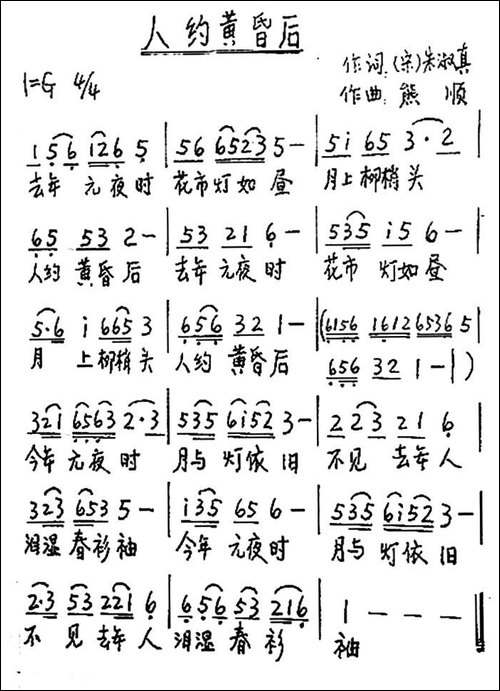 人约黄昏后
作词:(宋)朱淑真
1=G 4/4
作曲:熊 顺
1 5 6 1 2 6 5 | 5 6 6 5 2 3 5 — | 5 i 6 5 3 · 2 |
去年 元夜时 花市灯如昼 月上柳梢头
6 5 5 3 2 — | 5 3 2 1 6 — | 5 3 5 i 5 6 — |
人约 黄昏后 去年 元夜时 花市 灯如昼
5 · 6 i 6 6 5 3 | 6 5 6 3 2 1 — | (6 1 5 6 1 6 1 2 6 5 3 6 5 |
月 上柳梢头 人约 黄昏后 6 5 6 3 2 1 — | )
3 2 1 6 5 6 3 2 · 3 | 5 3 5 6 i 5 2 3 — | 2 2 3 2 1 6 |
今年 元夜时 月与 灯依旧 不见 去年人
3 2 3 6 5 3 5 — | i 3 5 6 5 6 — | 5 3 5 6 i 5 2 3 — |
泪湿 春衫袖 今年 元夜时 月与 灯依旧
2 · 3 5 3 2 2 1 6 | 6 5 6 5 3 2 1 6 | 1 — — — ‖
不 见 去年 人 泪湿 春 衫 袖